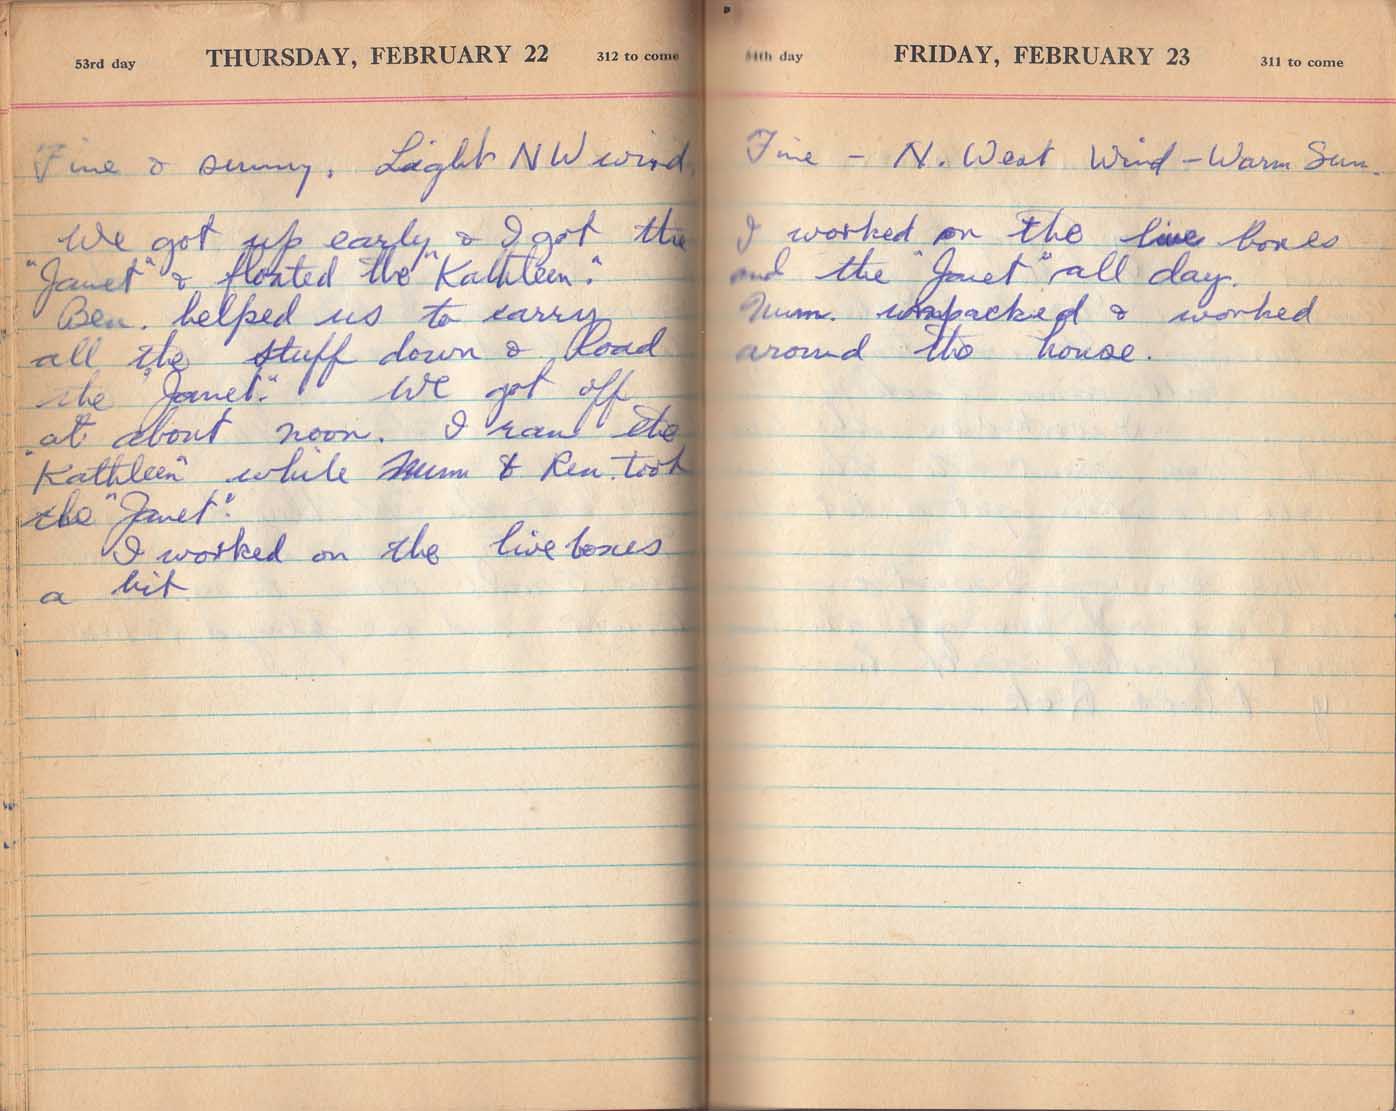 53rd day THURSDAY, FEBRUARY 22 312 to come
Fine & sunny. Light NW wind.
We got up early & I got the
"Janet" & floated the "Kathleen".
Ben. helped us to carry
all the stuff down & load
the "Janet". We got off
at about noon. I ran the
"Kathleen" while Mum & Ken. took
the "Janet".
I worked on the live boxes
a bit
54th day FRIDAY, FEBRUARY 23 311 to come
Fine - N. West Wind - Warm Sun.
I worked on the live boxes
and the "Janet" all day.
Mum. unpacked & worked
around the house.